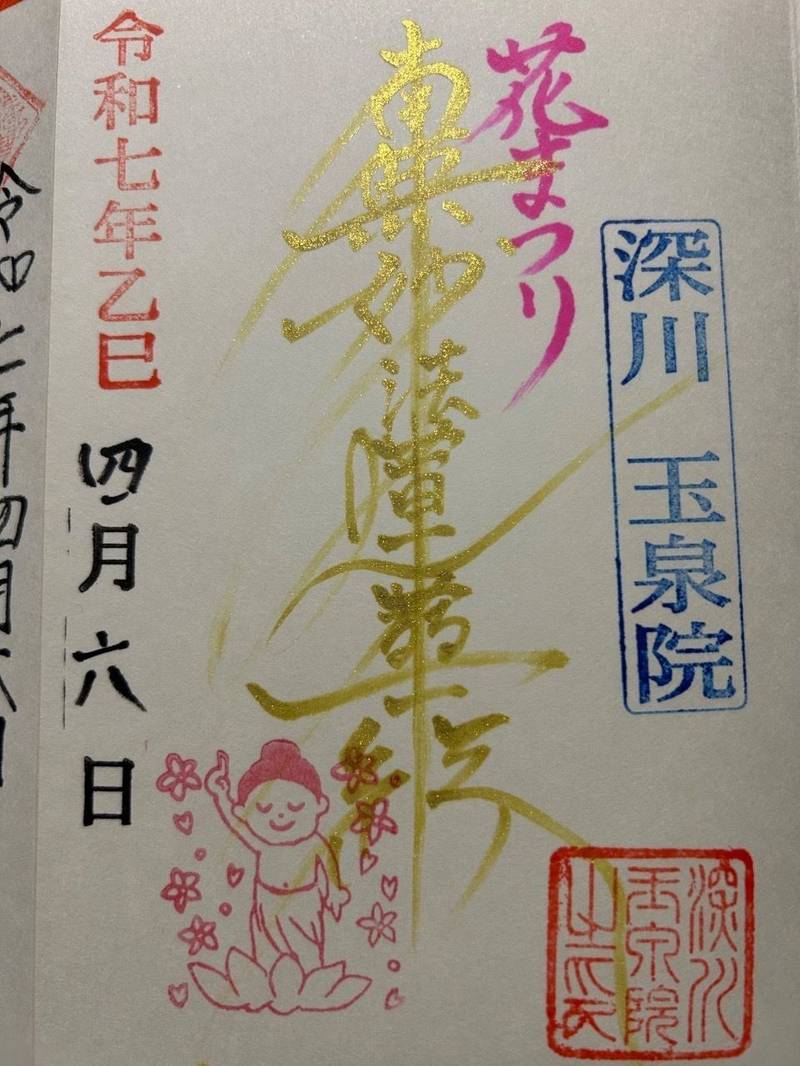 深川 玉泉院
花まつり
南無妙法蓮華経
深川
玉泉院
之印
令和七年乙巳 四月六日
令和七年四月六日